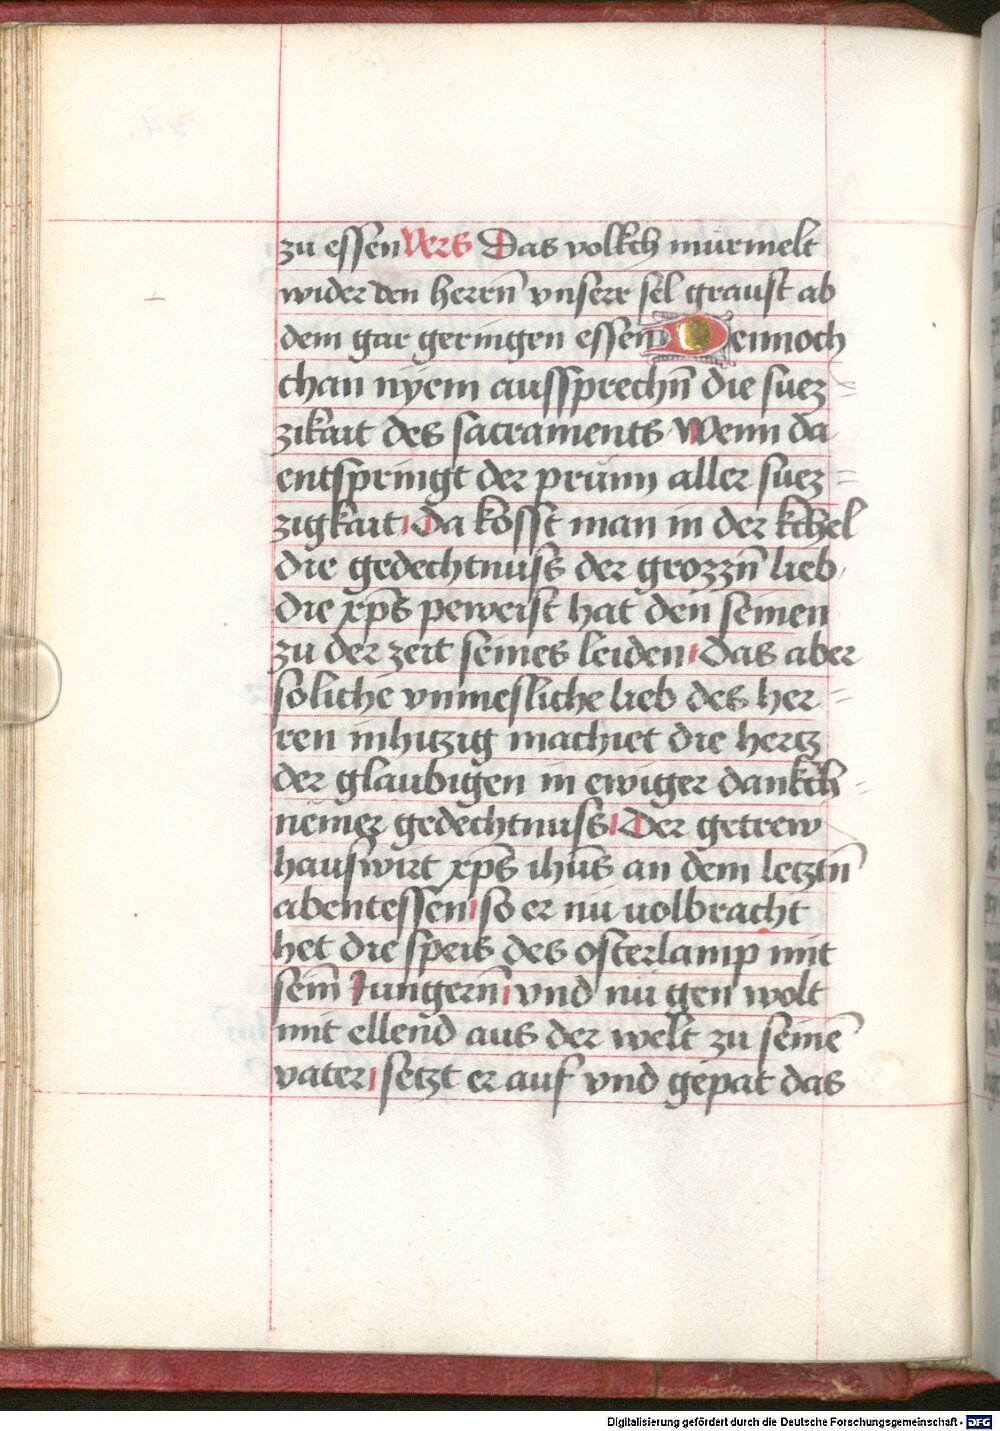 zu essen Vers Das volkch murmelt
wider den herrn̄ vnserr sel graust ab
dem gar geringen essen Dennoch
chan nyem aussprechn̄ die suez=
zikait des sacraments Wenn da
entspringt der prunn aller suez=
zigkait Da kosst man in der kchel
die gedechtnuss der grozzn̄ lieb
die xp̄s peweist hat den seinen
zu der zeit seines leiden Das aber
soliche vnmesliche lieb des her=
ren inhitzig machiet die hertz
der glaubigen in ewiger dankch=
nemer gedechtnuss Der getrew
hauswirt xp̄s ihūs an dem letztn̄
abentessen so er nu uolbracht
het die speis des osterlamp mit
sein̄ Iungern̄ vnd nu gen wolt
mit ellend aus der welt zu seinē
vater setzt er auf vnd gepat das
Digitalisierung gefördert durch die Deutsche Forschungsgemeinschaft - DFG